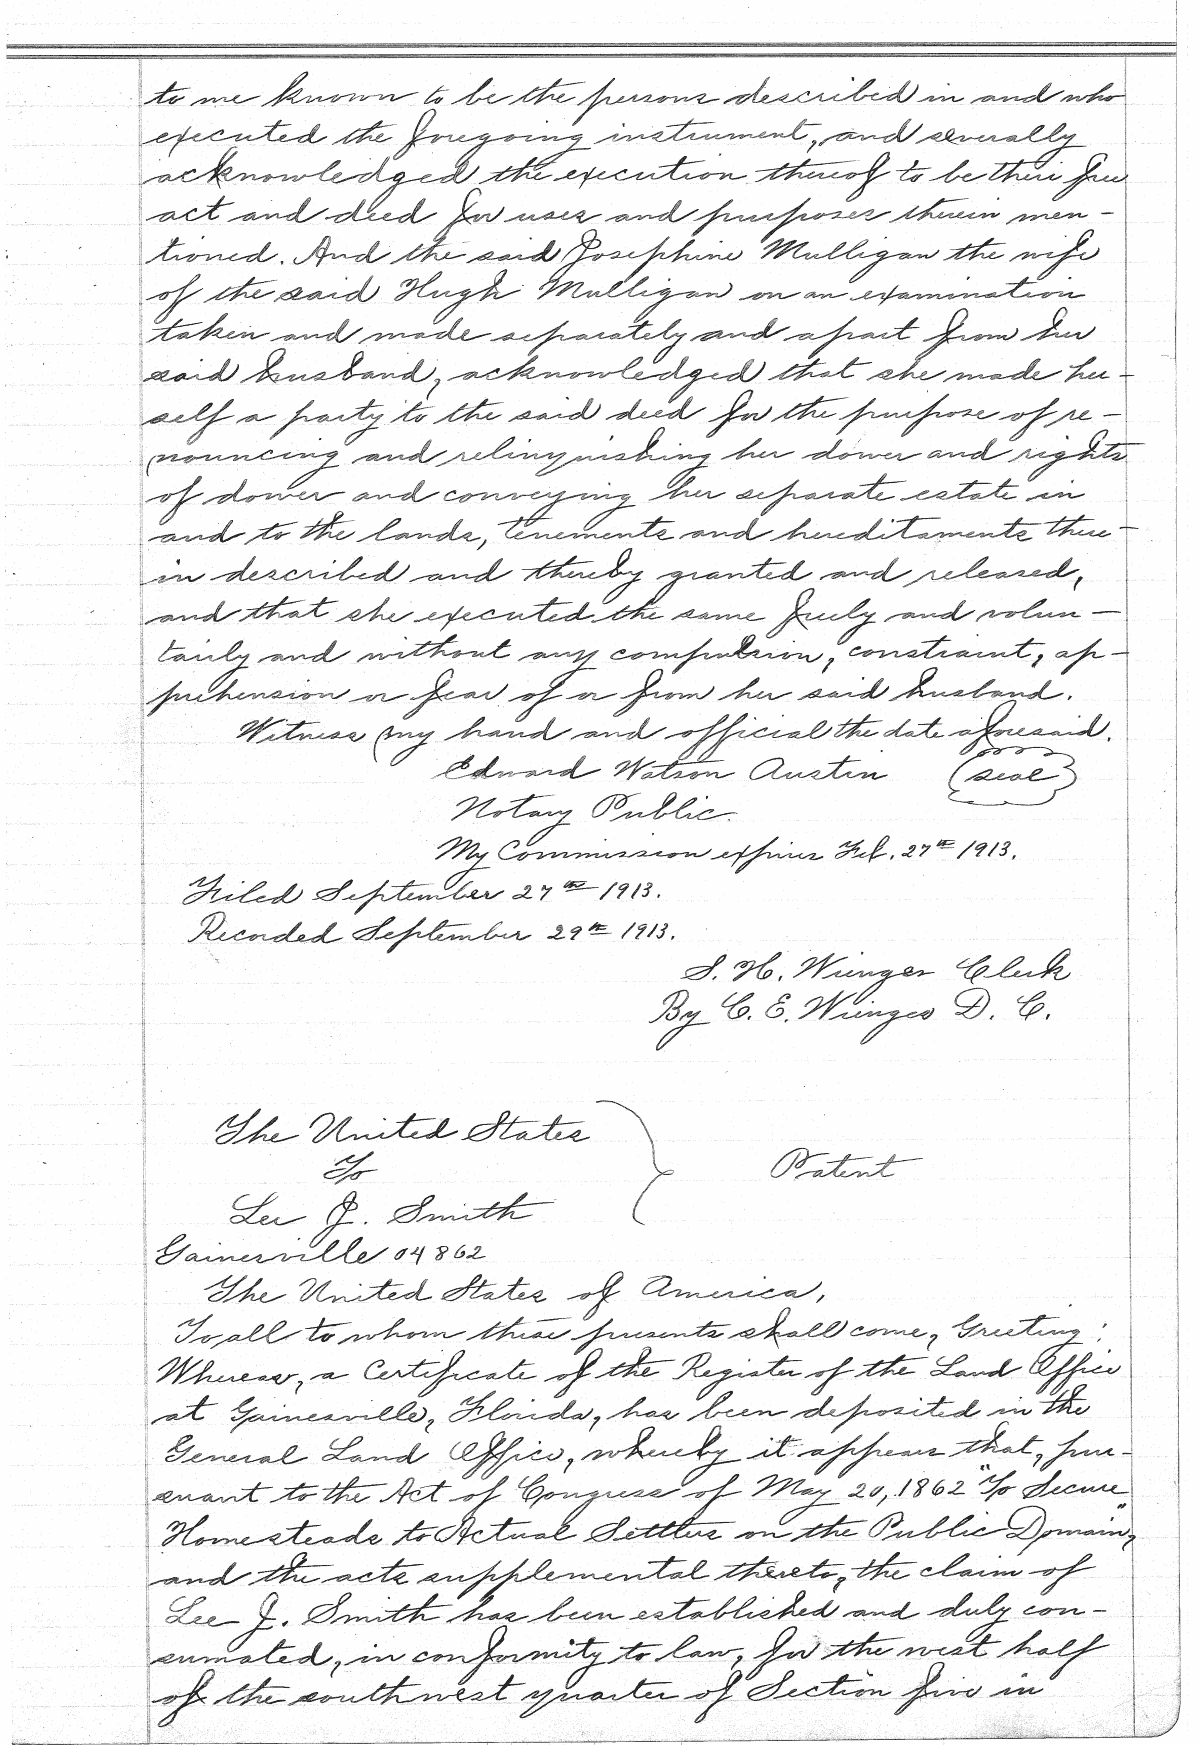 to me known to be the persons described in and who
executed the foregoing instrument, and severally
acknowledged the execution thereof to be their free
act and deed for uses and purposes therein men-
tioned. And the said Josephine Mulligan the wife
of the said Hugh Mulligan on an examination
taken and made separately and apart from her
said husband, acknowledged that she made her-
self a party to the said deed for the purpose of re-
nouncing and relinquishing her dower and rights
of dower and conveying her separate estate in
and to the lands, tenements and hereditaments there-
in described and thereby granted and released,
and that she executed the same freely and volun-
tarily and without any compulsion, constraint, ap-
prehension or fear of or from her said husband.
Witness my hand and official the date aforesaid.
Edward Watson Austin (seal)
Notary Public.
My Commission expires Feb. 27th 1913.
Filed September 27th 1913.
Recorded September 29th 1913.
S. H. Clerk
By C. E. D. C.
The United States
To
Patent
Lee J. Smith
Gainesville 04862
The United States of America,
To all to whom these presents shall come, Greeting:
Whereas, a Certificate of the Register of the Land Office
at Gainesville, Florida, has been deposited in the
General Land Office, whereby it appears that, pur-
suant to the Act of Congress of May 20, 1862 "To Secure
Homesteads to Actual Settlers on the Public Domain,"
and the acts supplemental thereto, the claim of
Lee J. Smith has been established and duly con-
sumated, in conformity to law, for the west half
of the southwest quarter of Section five in